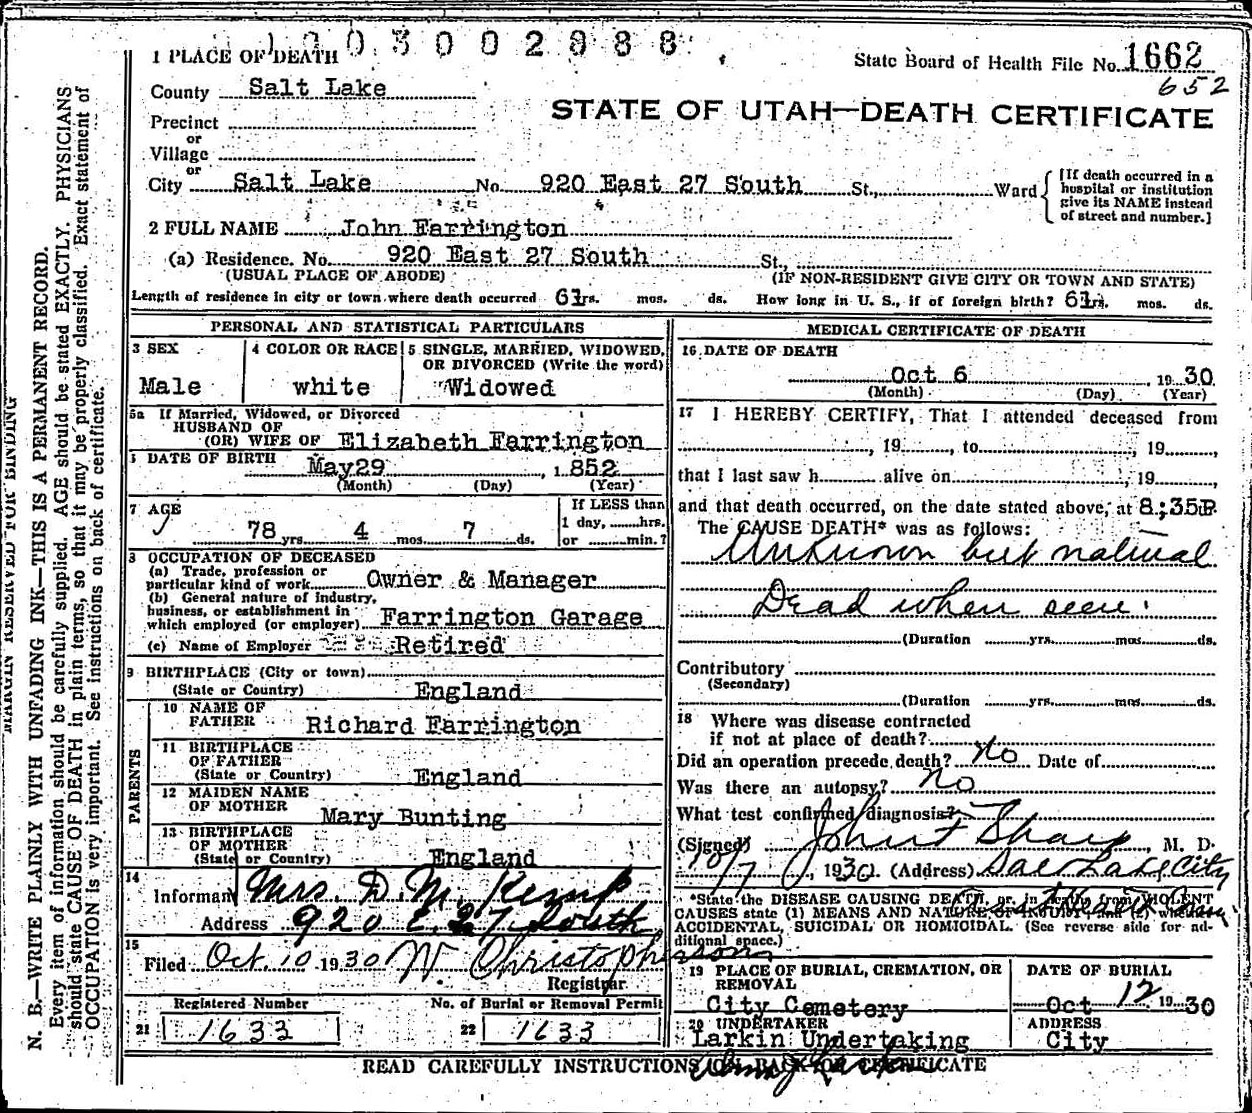 1003002988
1 PLACE OF DEATH
State Board of Health File No. 1662
652
County Salt Lake
STATE OF UTAH—DEATH CERTIFICATE
Precinct
or
Village
or
City Salt Lake No. 920 East 27 South St., Ward
[If death occurred in a hospital or institution give its NAME instead of street and number.]
2 FULL NAME John Farrington
(a) Residence. No. 920 East 27 South St.,
(USUAL PLACE OF ABODE) (IF NON-RESIDENT GIVE CITY OR TOWN AND STATE)
Length of residence in city or town where death occurred 61rs. mos. ds. How long in U. S., if of foreign birth? 61rs. mos. ds.
PERSONAL AND STATISTICAL PARTICULARS
3 SEX
Male
4 COLOR OR RACE
white
5 SINGLE, MARRIED, WIDOWED, OR DIVORCED (Write the word)
Widowed
5a If Married, Widowed, or Divorced
HUSBAND OF
(OR) WIFE OF Elizabeth Farrington
DATE OF BIRTH May29 , 1852
(Month) (Day) (Year)
7 AGE
78 yrs. 4 mos. 7 ds.
If LESS than
1 day, hrs.
or min.?
8 OCCUPATION OF DECEASED
(a) Trade, profession or
particular kind of work Owner & Manager
(b) General nature of industry,
business, or establishment in
which employed (or employer) Farrington Garage
(c) Name of Employer Retired
9 BIRTHPLACE (City or town)
(State or Country) England
PARENTS
10 NAME OF
FATHER Richard Farrington
11 BIRTHPLACE
OF FATHER
(State or Country) England
12 MAIDEN NAME
OF MOTHER
Mary Bunting
13 BIRTHPLACE
OF MOTHER
(State or Country) England
14
Informant Mrs. D. M. Kemp
Address 920 E. 27 South
15
Filed Oct. 10 1930 W. Christophersons
Registrar
Registered Number
21 1633
No. of Burial or Removal Permit
22 1633
MEDICAL CERTIFICATE OF DEATH
16 DATE OF DEATH
Oct 6 , 1930
(Month) (Day) (Year)
17 I HEREBY CERTIFY, That I attended deceased from
, 19 , to , 19 ,
that I last saw h alive on , 19 ,
and that death occurred, on the date stated above, at 8;35P.
The CAUSE DEATH* was as follows:
Unknown but natural
Dead when seen.
(Duration yrs. mos. ds.
Contributory
(Secondary)
(Duration yrs. mos. ds.
18 Where was disease contracted
if not at place of death?
Did an operation precede death? no Date of
Was there an autopsy? no
What test confirmed diagnosis?
(Signed) John F Sharp, M. D.
10/7, 1930. (Address) Salt Lake City
*State the DISEASE CAUSING DEATH, or, in deaths from VIOLENT
CAUSES state (1) MEANS AND NATURE OF INJURY, and (2) whether
ACCIDENTAL, SUICIDAL OR HOMICIDAL. (See reverse side for ad-
ditional space.)
19 PLACE OF BURIAL, CREMATION, OR REMOVAL
City Cemetery
DATE OF BURIAL
Oct 12 1930
20 UNDERTAKER
Larkin Undertaking
ADDRESS
City
READ CAREFULLY INSTRUCTIONS ON BACK OF CERTIFICATE
MARGIN RESERVED FOR BINDING
N. B.—WRITE PLAINLY WITH UNFADING INK—THIS IS A PERMANENT RECORD.
Every item of information should be carefully supplied. AGE should be stated EXACTLY. PHYSICIANS
should state CAUSE OF DEATH in plain terms, so that it may be properly classified. Exact statement of
OCCUPATION is very important. See instructions on back of certificate.